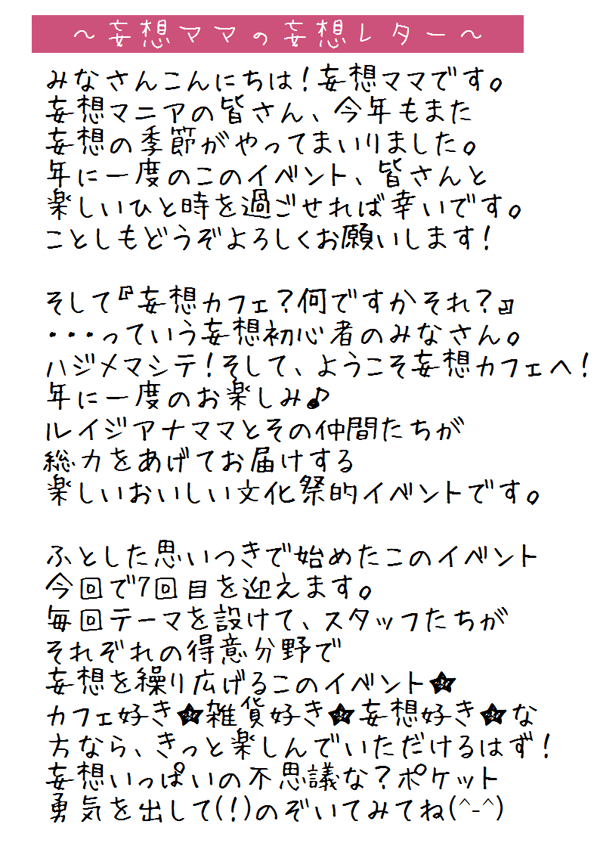 ～妄想ママの妄想レター～
みなさんこんにちは！妄想ママです。
妄想マニアの皆さん、今年もまた
妄想の季節がやってまいりました。
年に一度のこのイベント、皆さんと
楽しいひと時を過ごせれば幸いです。
ことしもどうぞよろしくお願いします！
そして『妄想カフェ？何ですかそれ？』
・・・っていう妄想初心者のみなさん。
ハジメマシテ！そして、ようこそ妄想カフェへ！
年に一度のお楽しみ♪
ルイジアナママとその仲間たちが
総力をあげてお届けする
楽しいおいしい文化祭的イベントです。
ふとした思いつきで始めたこのイベント
今回で7回目を迎えます。
毎回テーマを設けて、スタッフたちが
それぞれの得意分野で
妄想を繰り広げるこのイベント★
カフェ好き★雑貨好き★妄想好き★な
方なら、きっと楽しんでいただけるはず！
妄想いっぱいの不思議な？ポケット
勇気を出して(！)のぞいてみてね(^-^)